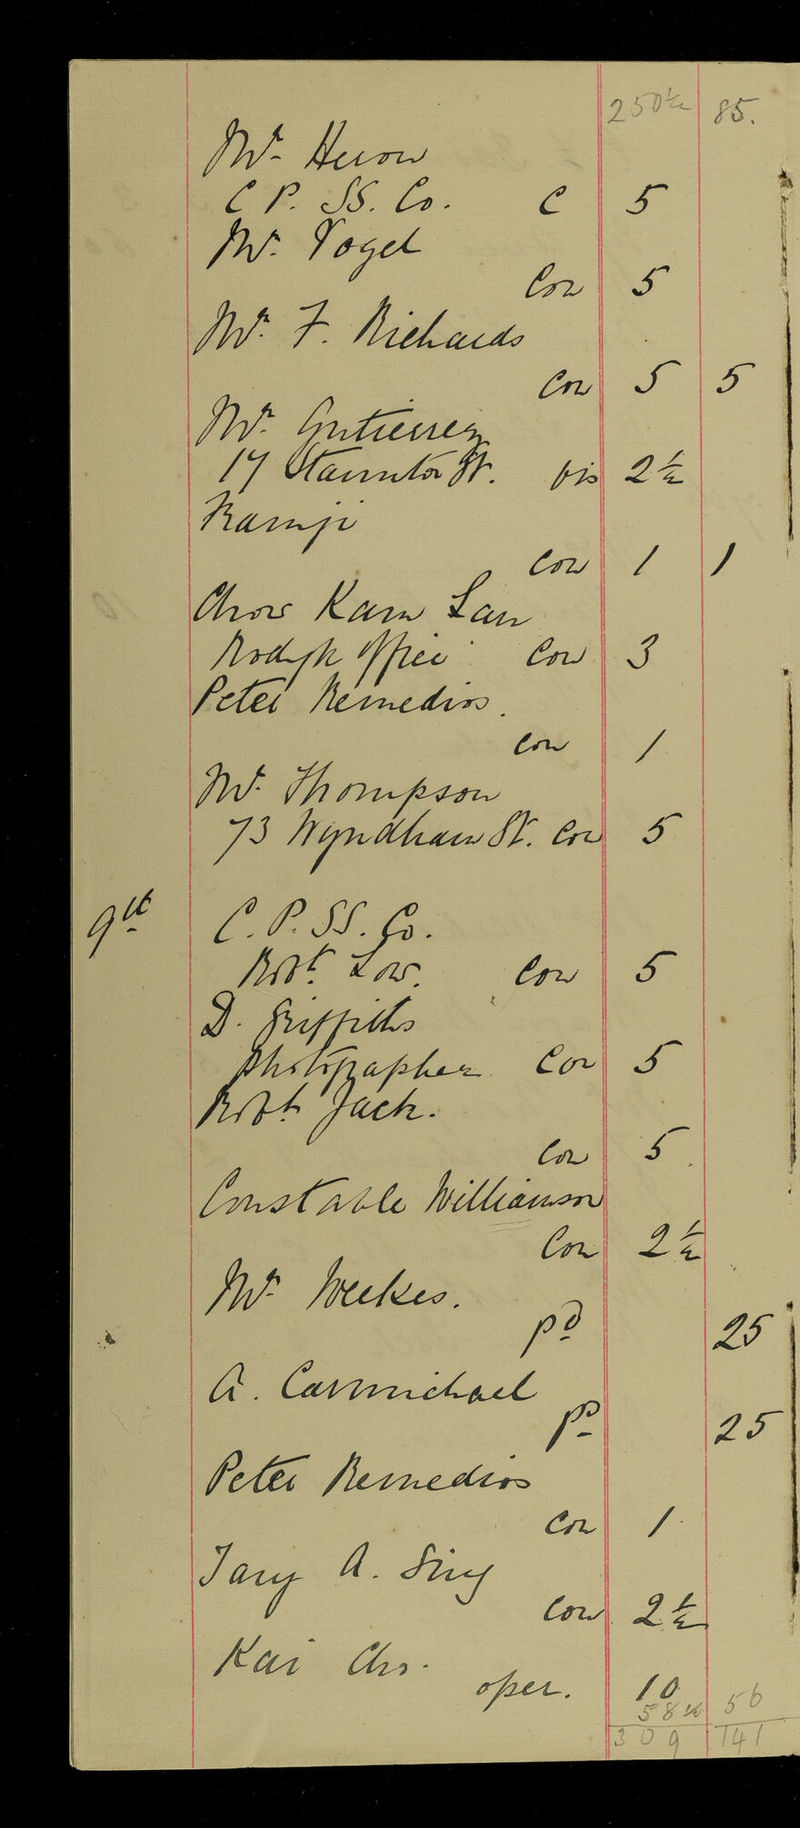 250½ 85.
Mr. Heron
C P. SS. Co. C 5
Mr. Vogel
Con 5
Mr. F. Richards
Con 5 5
Mr. Gutierrez
17 Staunton St. vis 2½
Ramji
Con 1 1
Chow Kam Lau
office Con 3
Peter Remedios.
Con 1
Mr. Thompson
73 Wyndham St. Con 5
9th C. P. SS. Co.
Robt. Low. Con 5
D. Griffiths
photographer Con 5
Robt. Jack.
Con 5
Constable Williamson
Con 2½
Mr. Weekes.
pd 25
A. Carmichael
pd 25
Peter Remedios
Con 1
Tang A. Sing
Con 2½
Kai Cho.
oper. 10
58½ 56
309 141